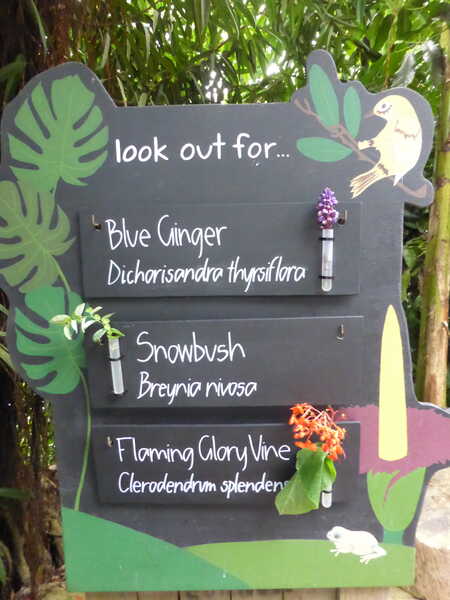 look out for...
Blue Ginger
Dichorisandra thyrsiflora
Snowbush
Breynia nivosa
Flaming Glory Vine
Clerodendrum splendens